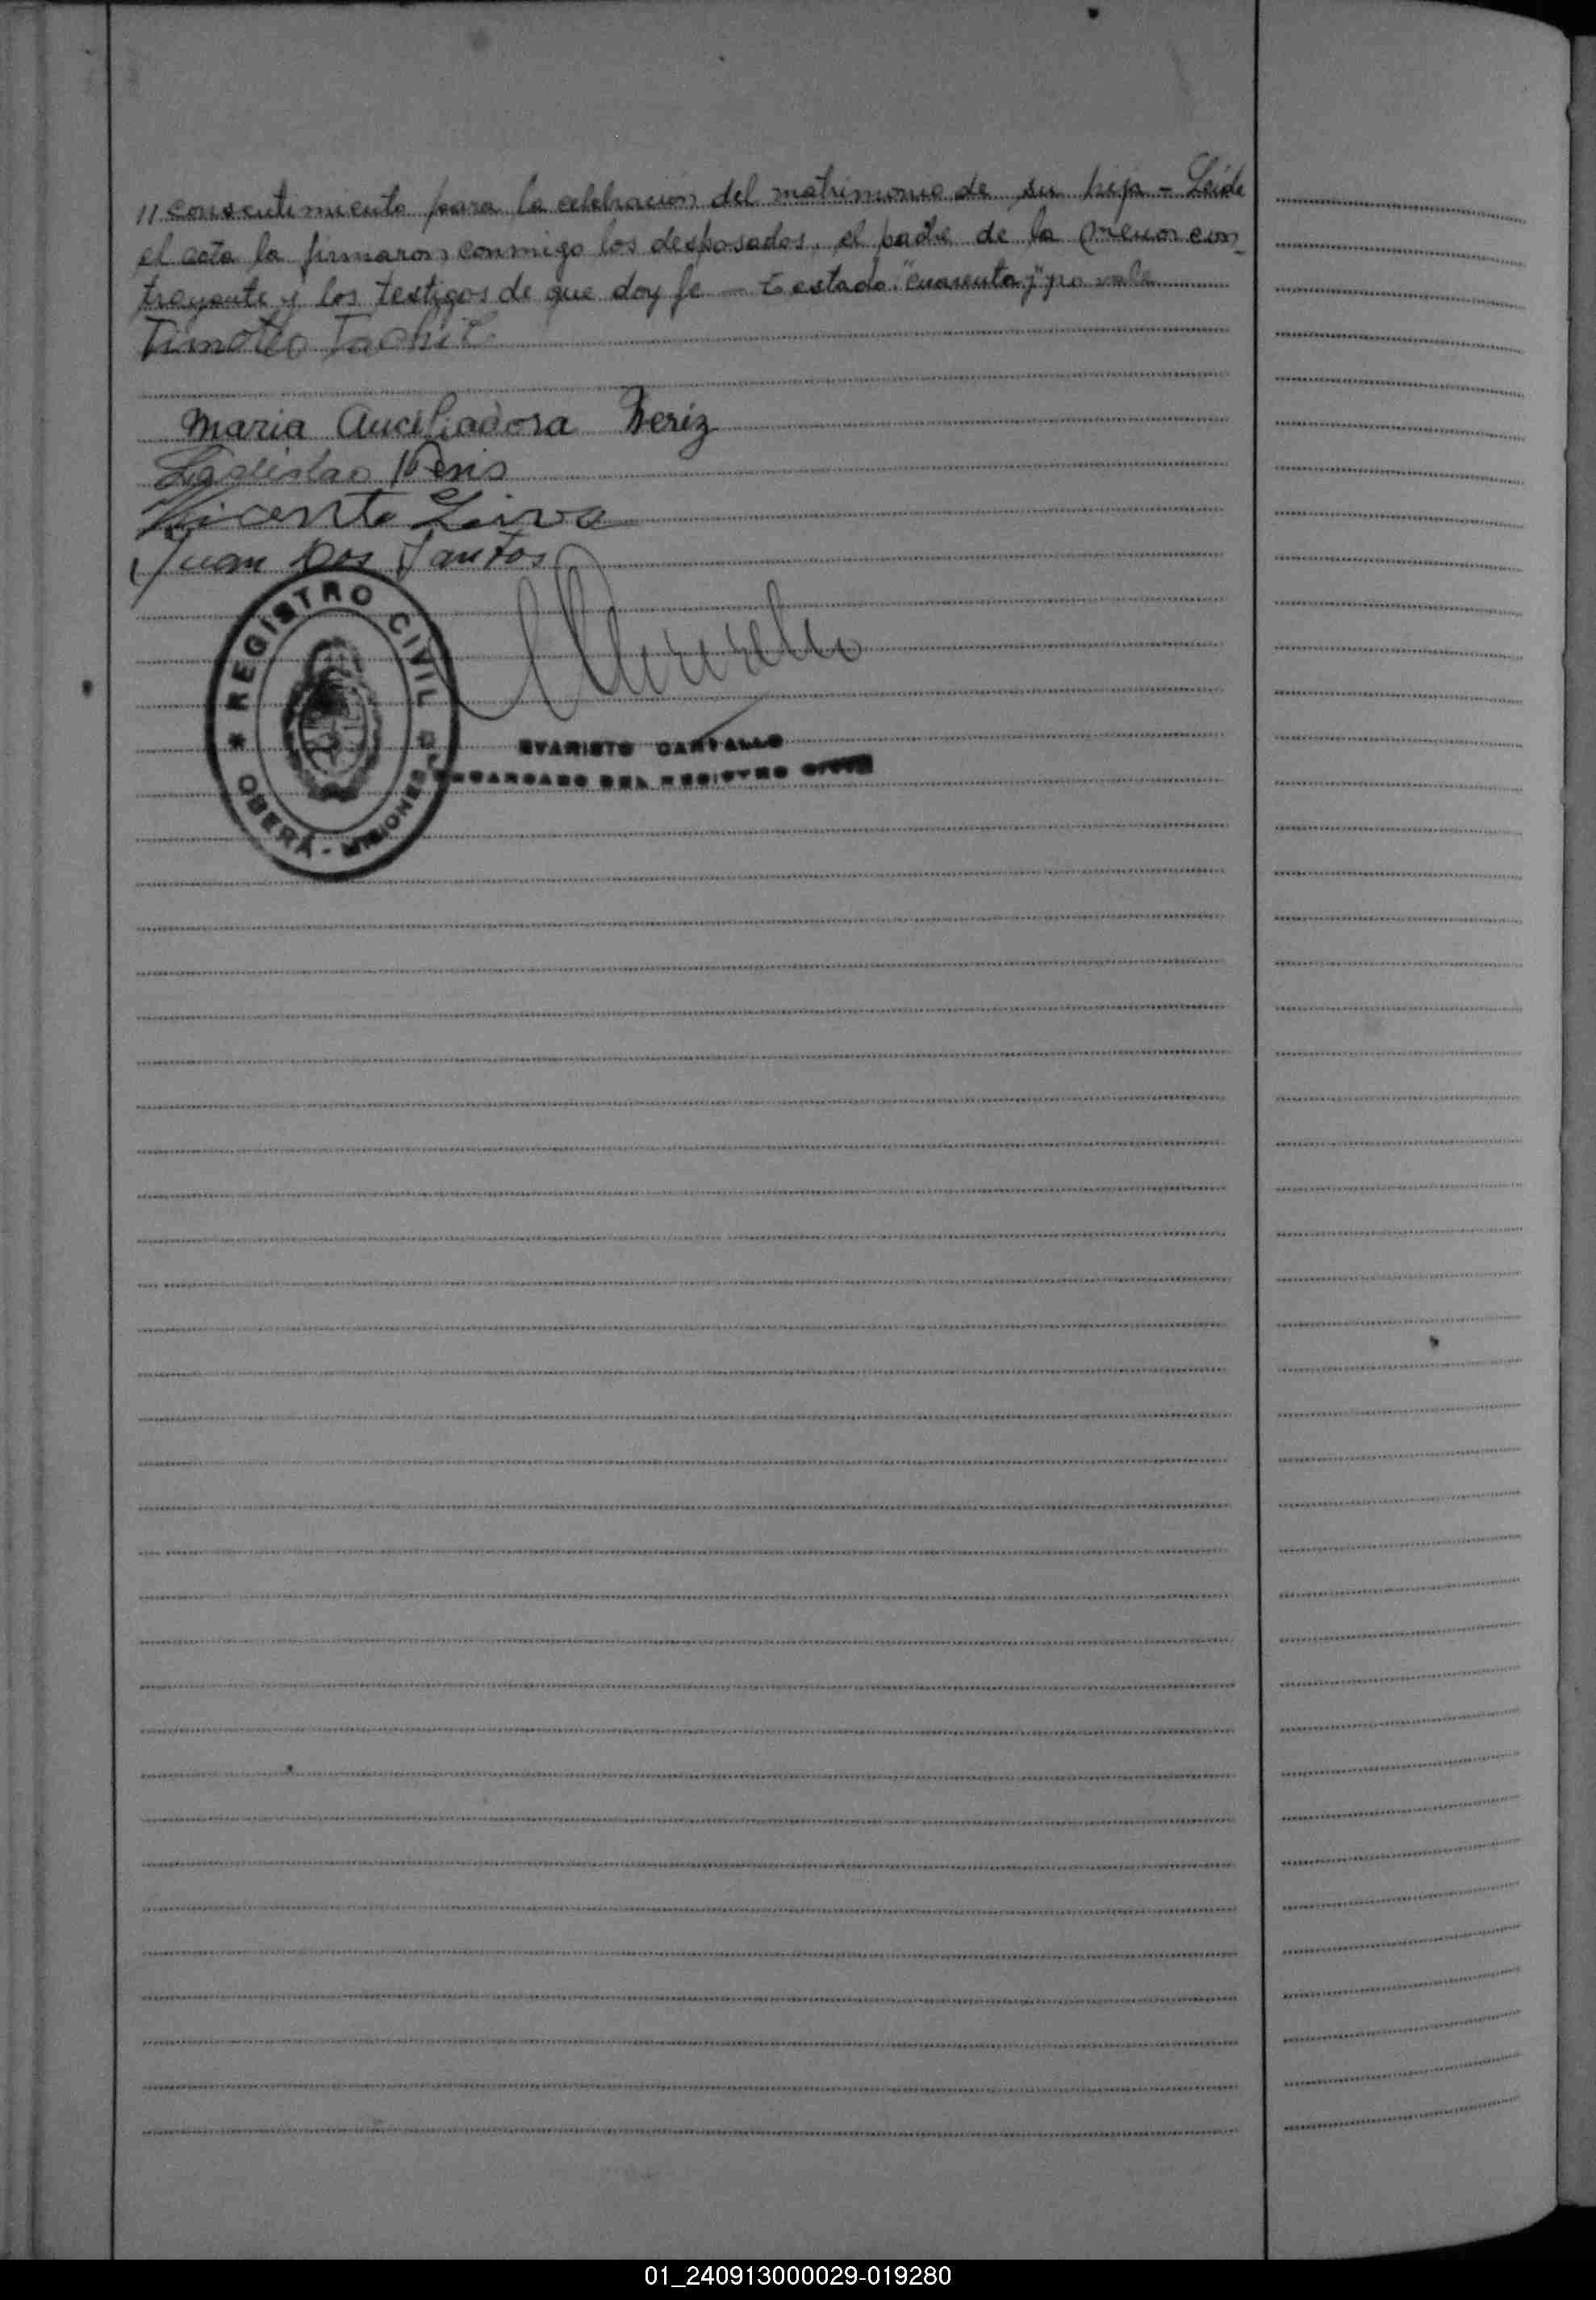 // consentimiento para la celebracion del matrimonio de su hija – Leida
el acta la firmaron conmigo los desposados, el padre de la menor con_
trayente y los testigos de que doy fe – testado: "cuarenta y" no vale
Timoteo
Maria Auciliadora Beriz
Ladislao
Vicente
Juan Dos Santos
REGISTRO CIVIL
OBERÁ - MISIONES
EVARISTO CARVALLO
ENCARGADO DEL REGISTRO CIVIL
01_240913000029-019280